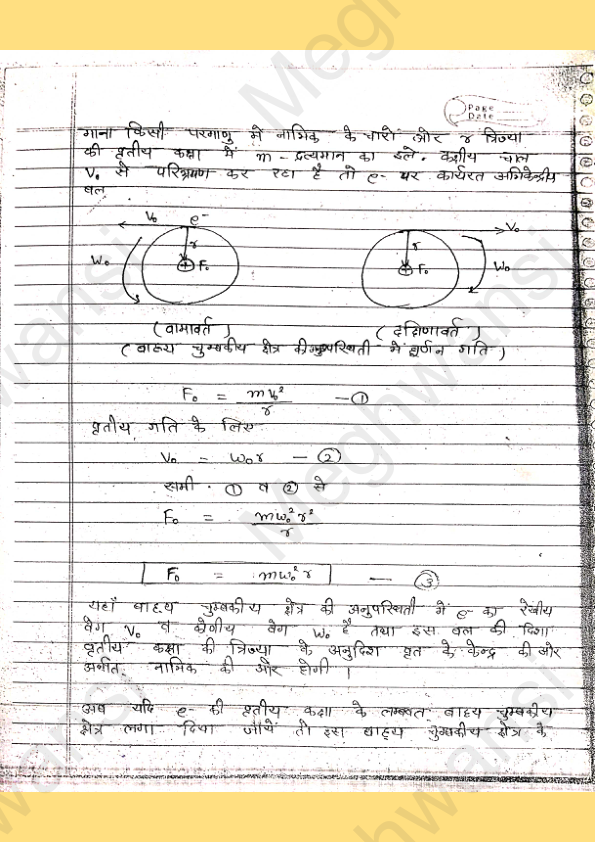 Page
Date
माना किसी परमाणु में नाभिक के चारों ओर r त्रिज्या
की वृतीय कक्षा में m - द्रव्यमान का इले. केन्द्रीय चाल
V₀ से परिभ्रमण कर रहा है तो e⁻ पर कार्यरत अभिकेन्द्रीय
बल
V₀ e⁻ V₀
r r
W₀ + F₀ + F₀ W₀
( वामावर्त ) ( दक्षिणावर्त )
( बाह्य चुम्बकीय क्षेत्र की अनुपस्थिती में घूर्णन गति )
F₀ = mv₀²/r — ①
वृतीय गति के लिए
V₀ = W₀r — ②
समी. ① व ② से
F₀ = mw₀²r²/r
F₀ = mw₀²r — ③
यहाँ बाह्य चुम्बकीय क्षेत्र की अनुपस्थिती में e⁻ का रेखीय
वेग V₀ व कोणीय वेग W₀ है तथा इस बल की दिशा
वृतीय कक्षा की त्रिज्या के अनुदिश वृत के केन्द्र की और
अर्थात नाभिक की और होगी ।
अब यदि e⁻ की वृतीय कक्षा के लम्बवत बाह्य चुम्बकीय
क्षेत्र लगा दिया जाये तो इस बाह्य चुम्बकीय क्षेत्र के
Meghwansi